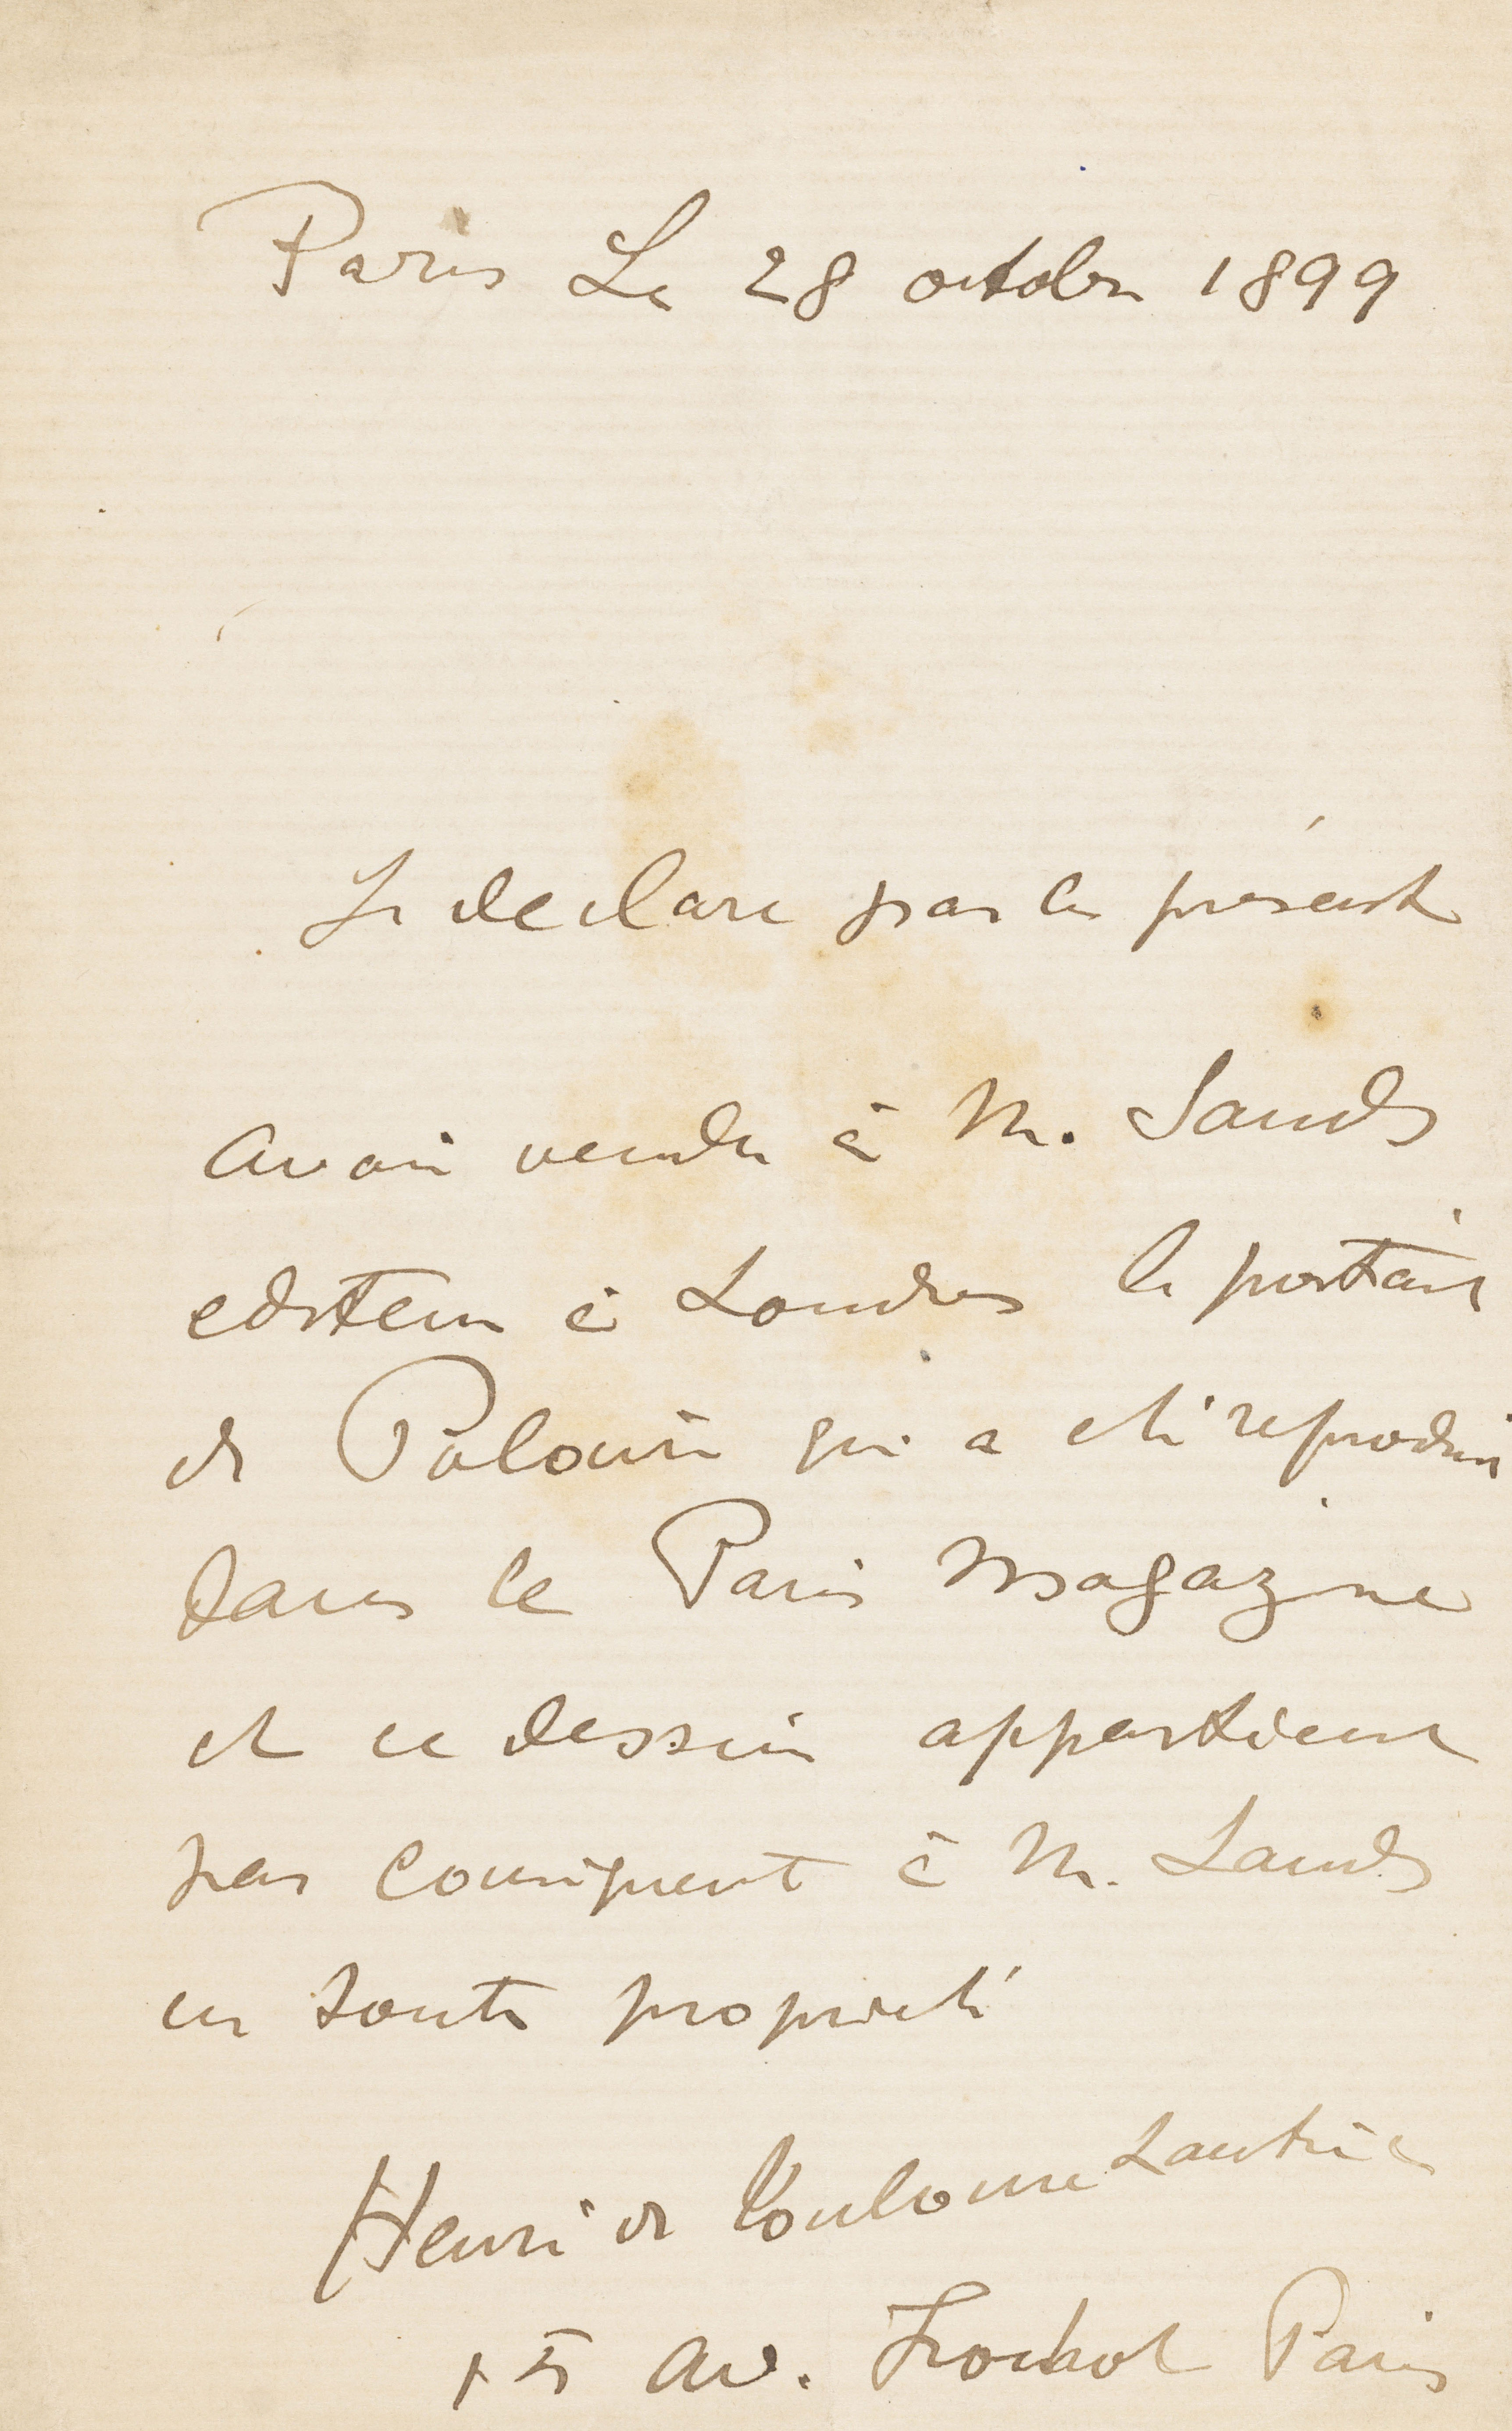 Paris Le 28 octobre 1899
Je declare par la présente
avoir vendu à M. Sands
editeur à Londres le portrait
de Polaire qui a été reproduit
dans le Paris Magazine
et ce dessin appartient
par consequent à M. Sands
en toute proprieté
Henri de Toulouse Lautrec
15 av. Frochot Paris